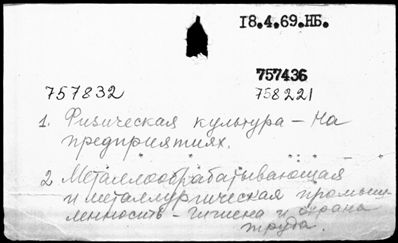 18.4.69.НБ.
757436
757832 758221
1. Физическая культура – на
предприятиях.
2 Металлообрабатывающая
и металлургическая промыш
ленность – гигиена и охрана
труда.